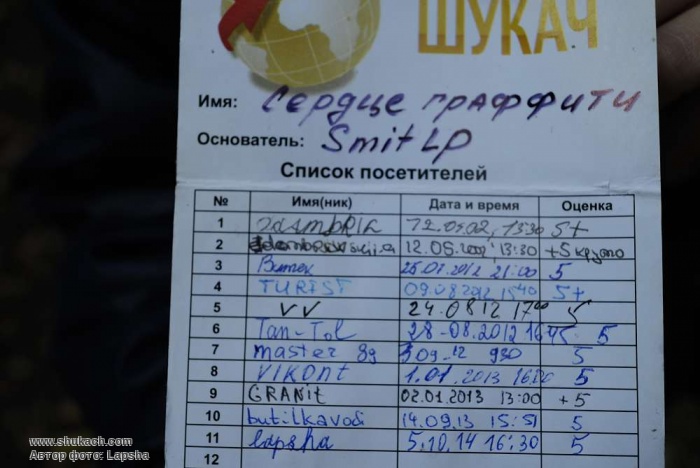 ШУКАЧ
Имя: Сердце граффити
Основатель: Smit LP
Список посетителей
№ Имя(ник) Дата и время Оценка
1 13:30 5+
2 13:30 +5 круто
3 21:00 5
4 TURIST 09.08 2012 15:40 5+
5 VV 24.08 12 17 5
6 Tan-Tol 28-08.2012 5
7 master 89 09.12 930 5
8 VIKONT 1.01.2013 5
9 GRANit 02.01.2013 13:00 +5
10 butilkavodi 14.09.13 15:51 5
11 lapsha 5.10.14 16:30 5
12
www.shukach.com
Автор фото: Lapsha